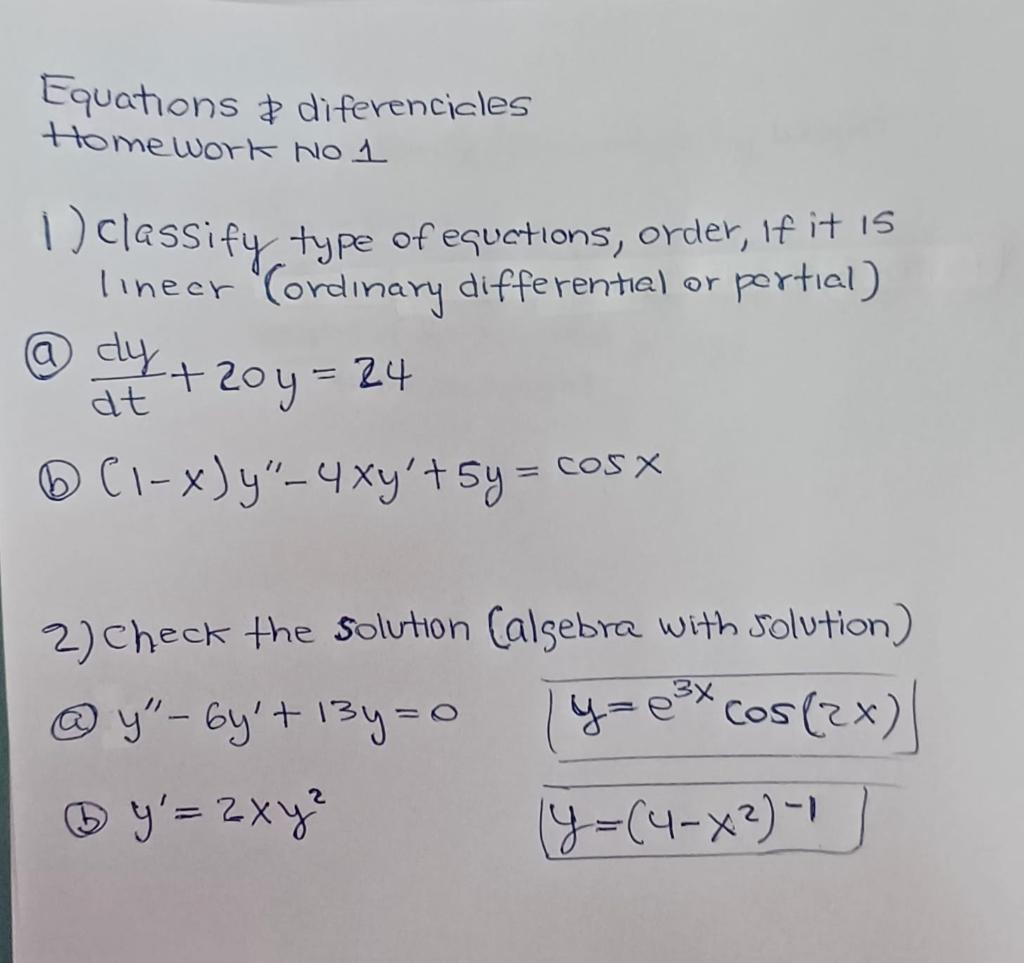 Equations & diferenciales
Homework No 1
1) Classify type of equations, order, If it is
linear (ordinary differential or partial)
ⓐ dy/dt + 20y = 24
ⓑ (1-x)y"-4xy'+5y = cos x
2) Check the solution (algebra with solution)
ⓐ y" - 6y' + 13y = 0 y = e^3x cos(2x)
ⓑ y' = 2xy² y = (4-x²)⁻¹